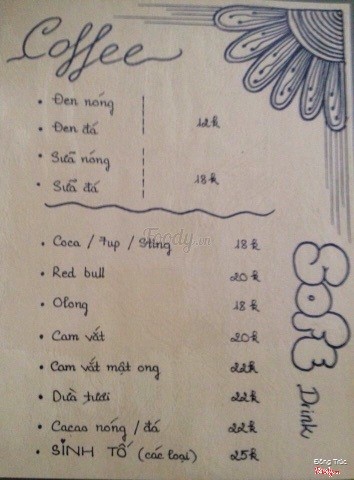 Coffee
• Đen nóng
• Đen đá
12k
• Sữa nóng
• Sữa đá
18k
• Coca / 7up / Sting 18k
• Red bull 20k
• Olong 18k
• Cam vắt 20k
• Cam vắt mật ong 22k
• Dừa tươi 22k
• Cacao nóng / đá 22k
• SINH TỐ (các loại) 25k
Soft
Drink
Foody.vn
Đông Trúc
Foody.vn